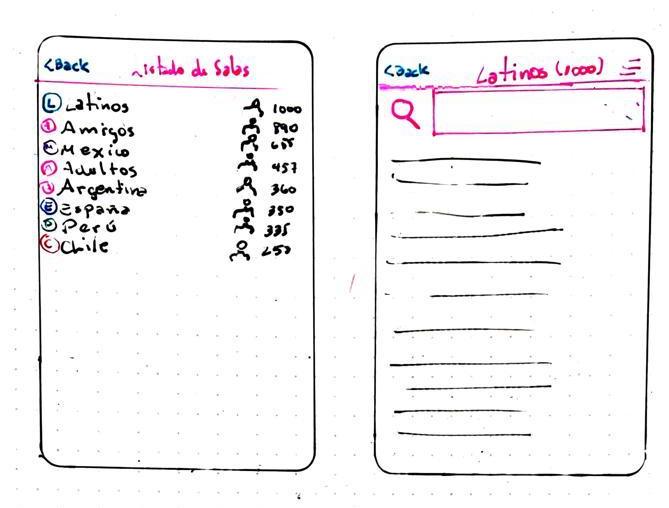 <Back
Listado de Salas
L Latinos 1000
Amigos 890
Mexico
Adultos 457
Argentina 360
E España 350
Perú 335
C Chile 250
<Back
Latinos (1000)